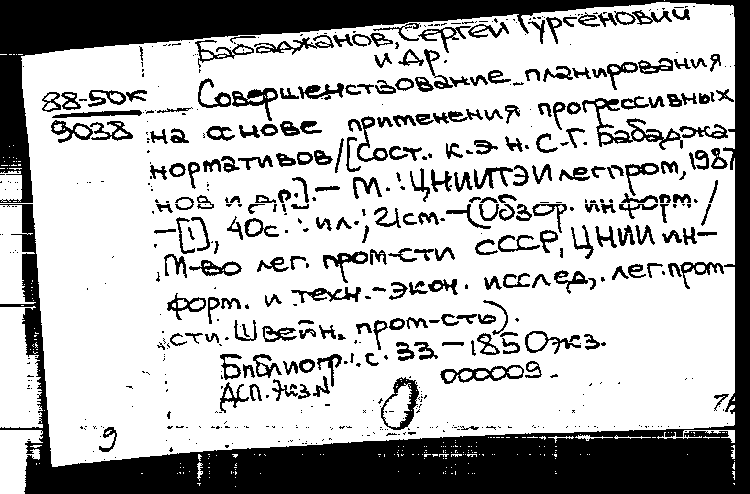 Бабаджанов, Сергей Тургенович
и др.
88-50К
9038
Совершенствование планирования
на основе применения прогрессивных
нормативов/[Сост.. к.э.н. С.Г. Бабаджа-
нов и др.].— М.: ЦНИИТЭИлегпром, 1987
—[1], 40с.: ил.; 21см.—(Обзор. информ./
М-во лег. пром-сти СССР, ЦНИИ ин-
форм. и техн.-экон. исслед. лег.пром-
сти. Швейн. пром-сть).
Библиогр.: с. 33.—1850экз.
ДСП. Экз.N 000009.
9